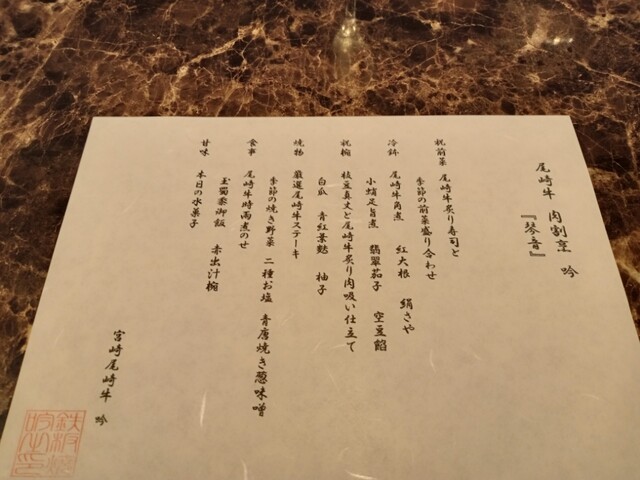 尾崎牛 肉割烹 吟
『琴音』
祝前菜 尾崎牛炙り寿司と
季節の前菜盛り合わせ
冷鉢 尾崎牛角煮 紅大根 絹さや
小蛸足旨煮 翡翠茄子 空豆餡
祝椀 枝豆真丈と尾崎牛炙り肉吸い仕立て
白瓜 青紅葉麩 柚子
焼物 厳選尾崎牛ステーキ
季節の焼き野菜 二種お塩 青唐焼き葱味噌
食事 尾崎牛時雨煮のせ
玉蜀黍御飯 赤出汁椀
甘味 本日の水菓子
宮崎尾崎牛 吟